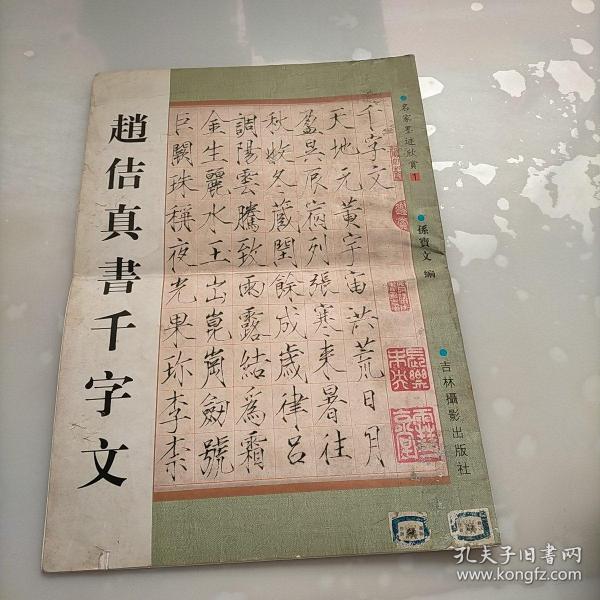 趙佶真書千字文
名家墨迹欣賞1
孫寶文 編
吉林攝影出版社
千字文
天地元黄宇宙洪荒日月
盈昃辰宿列張寒來暑往
秋收冬藏閏餘成歲律呂
調陽雲騰致雨露結爲霜
金生麗水玉出崑崗劍號
巨闕珠稱夜光果珍李柰
孔夫子旧书网
www.kongfz.com